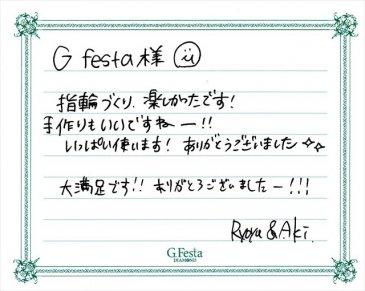 G festa様
指輪づくり、楽しかったです!
手作りもいいですねー!!
いっぱい使います! ありがとうございました☆☆
大満足です!! ありがとうございましたー!!!
Ryoya & Aki.
G.Festa
DIAMOND